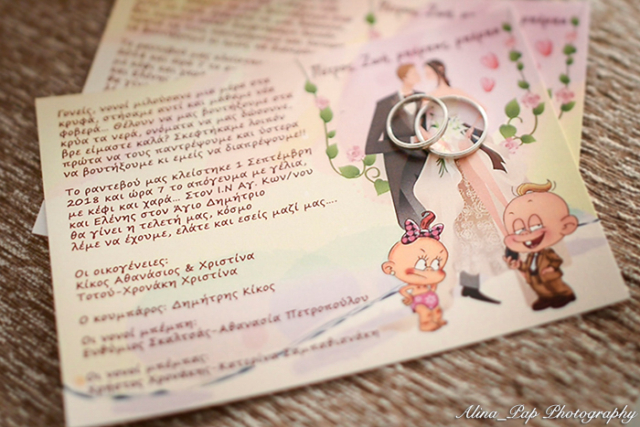 Γονείς, νονοί μιλούσανε μια μέρα στα
κρυφά, στήσαμε αυτί και μάθαμε νέα
φοβερά... Θέλουν να μας βουτήξουμε στα
κρύα τα νερά, ονόματα να μας δώσουν,
βρε είμαστε καλά? Σκεφτήκαμε λοιπόν
πρώτα να τους παντρέψουμε και ύστερα
να βουτήξουμε κι εμείς να διαπρέψουμε!!
Το ραντεβού μας κλείστηκε 1 Σεπτέμβρη
2018 και ώρα 7 το απόγευμα με γέλια,
με κέφι και χαρά... Στον Ι.Ν Αγ. Κων/νου
και Ελένης στον Άγιο Δημήτριο
θα γίνει η τελετή μας, κόσμο
λέμε να έχουμε, ελάτε και εσείς μαζί μας....
Οι οικογένειες:
Κίκος Αθανάσιος & Χριστίνα
Τοτού-Χρονάκη Χριστίνα
Ο κουμπάρος: Δημήτρης Κίκος
Οι νονοί μπέμπη:
Ευθύμιος Σκαλτσάς-Αθανασία Πετροπούλου
Οι νονοί μπέμπας:
Χρήστος Χρονάκης-Κατερίνα
Alina_Pap Photography